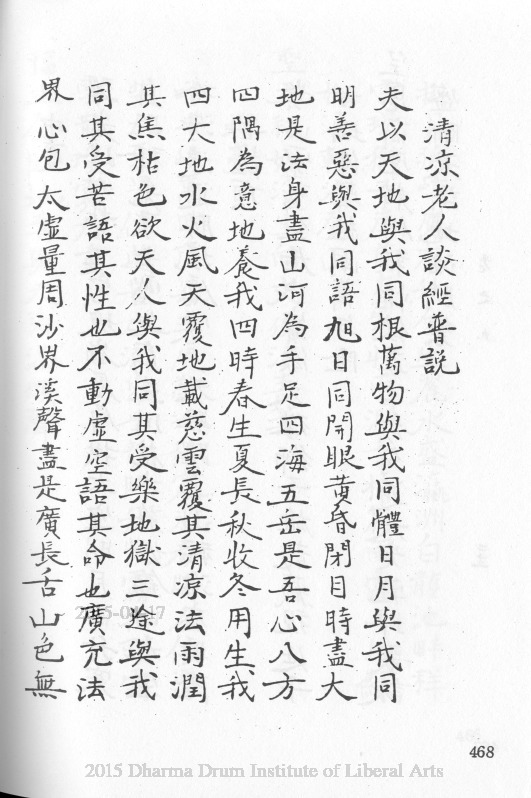 清凉老人談經普説
夫以天地與我同根萬物與我同體日月與我同
明善惡與我同語旭日同開眼黄昏閉目時盡大
地是法身盡山河為手足四海五岳是吾心八方
四隅為意地養我四時春生夏長秋收冬用生我
四大地水火風天覆地載慈雲覆其清凉法雨潤
其焦枯色欲天人與我同其受樂地獄三途與我
同其受苦語其性也不動虚空語其命也廣充法
界心包太虚量周沙界溪聲盡是廣長舌山色無
468
2015 Dharma Drum Institute of Liberal Arts